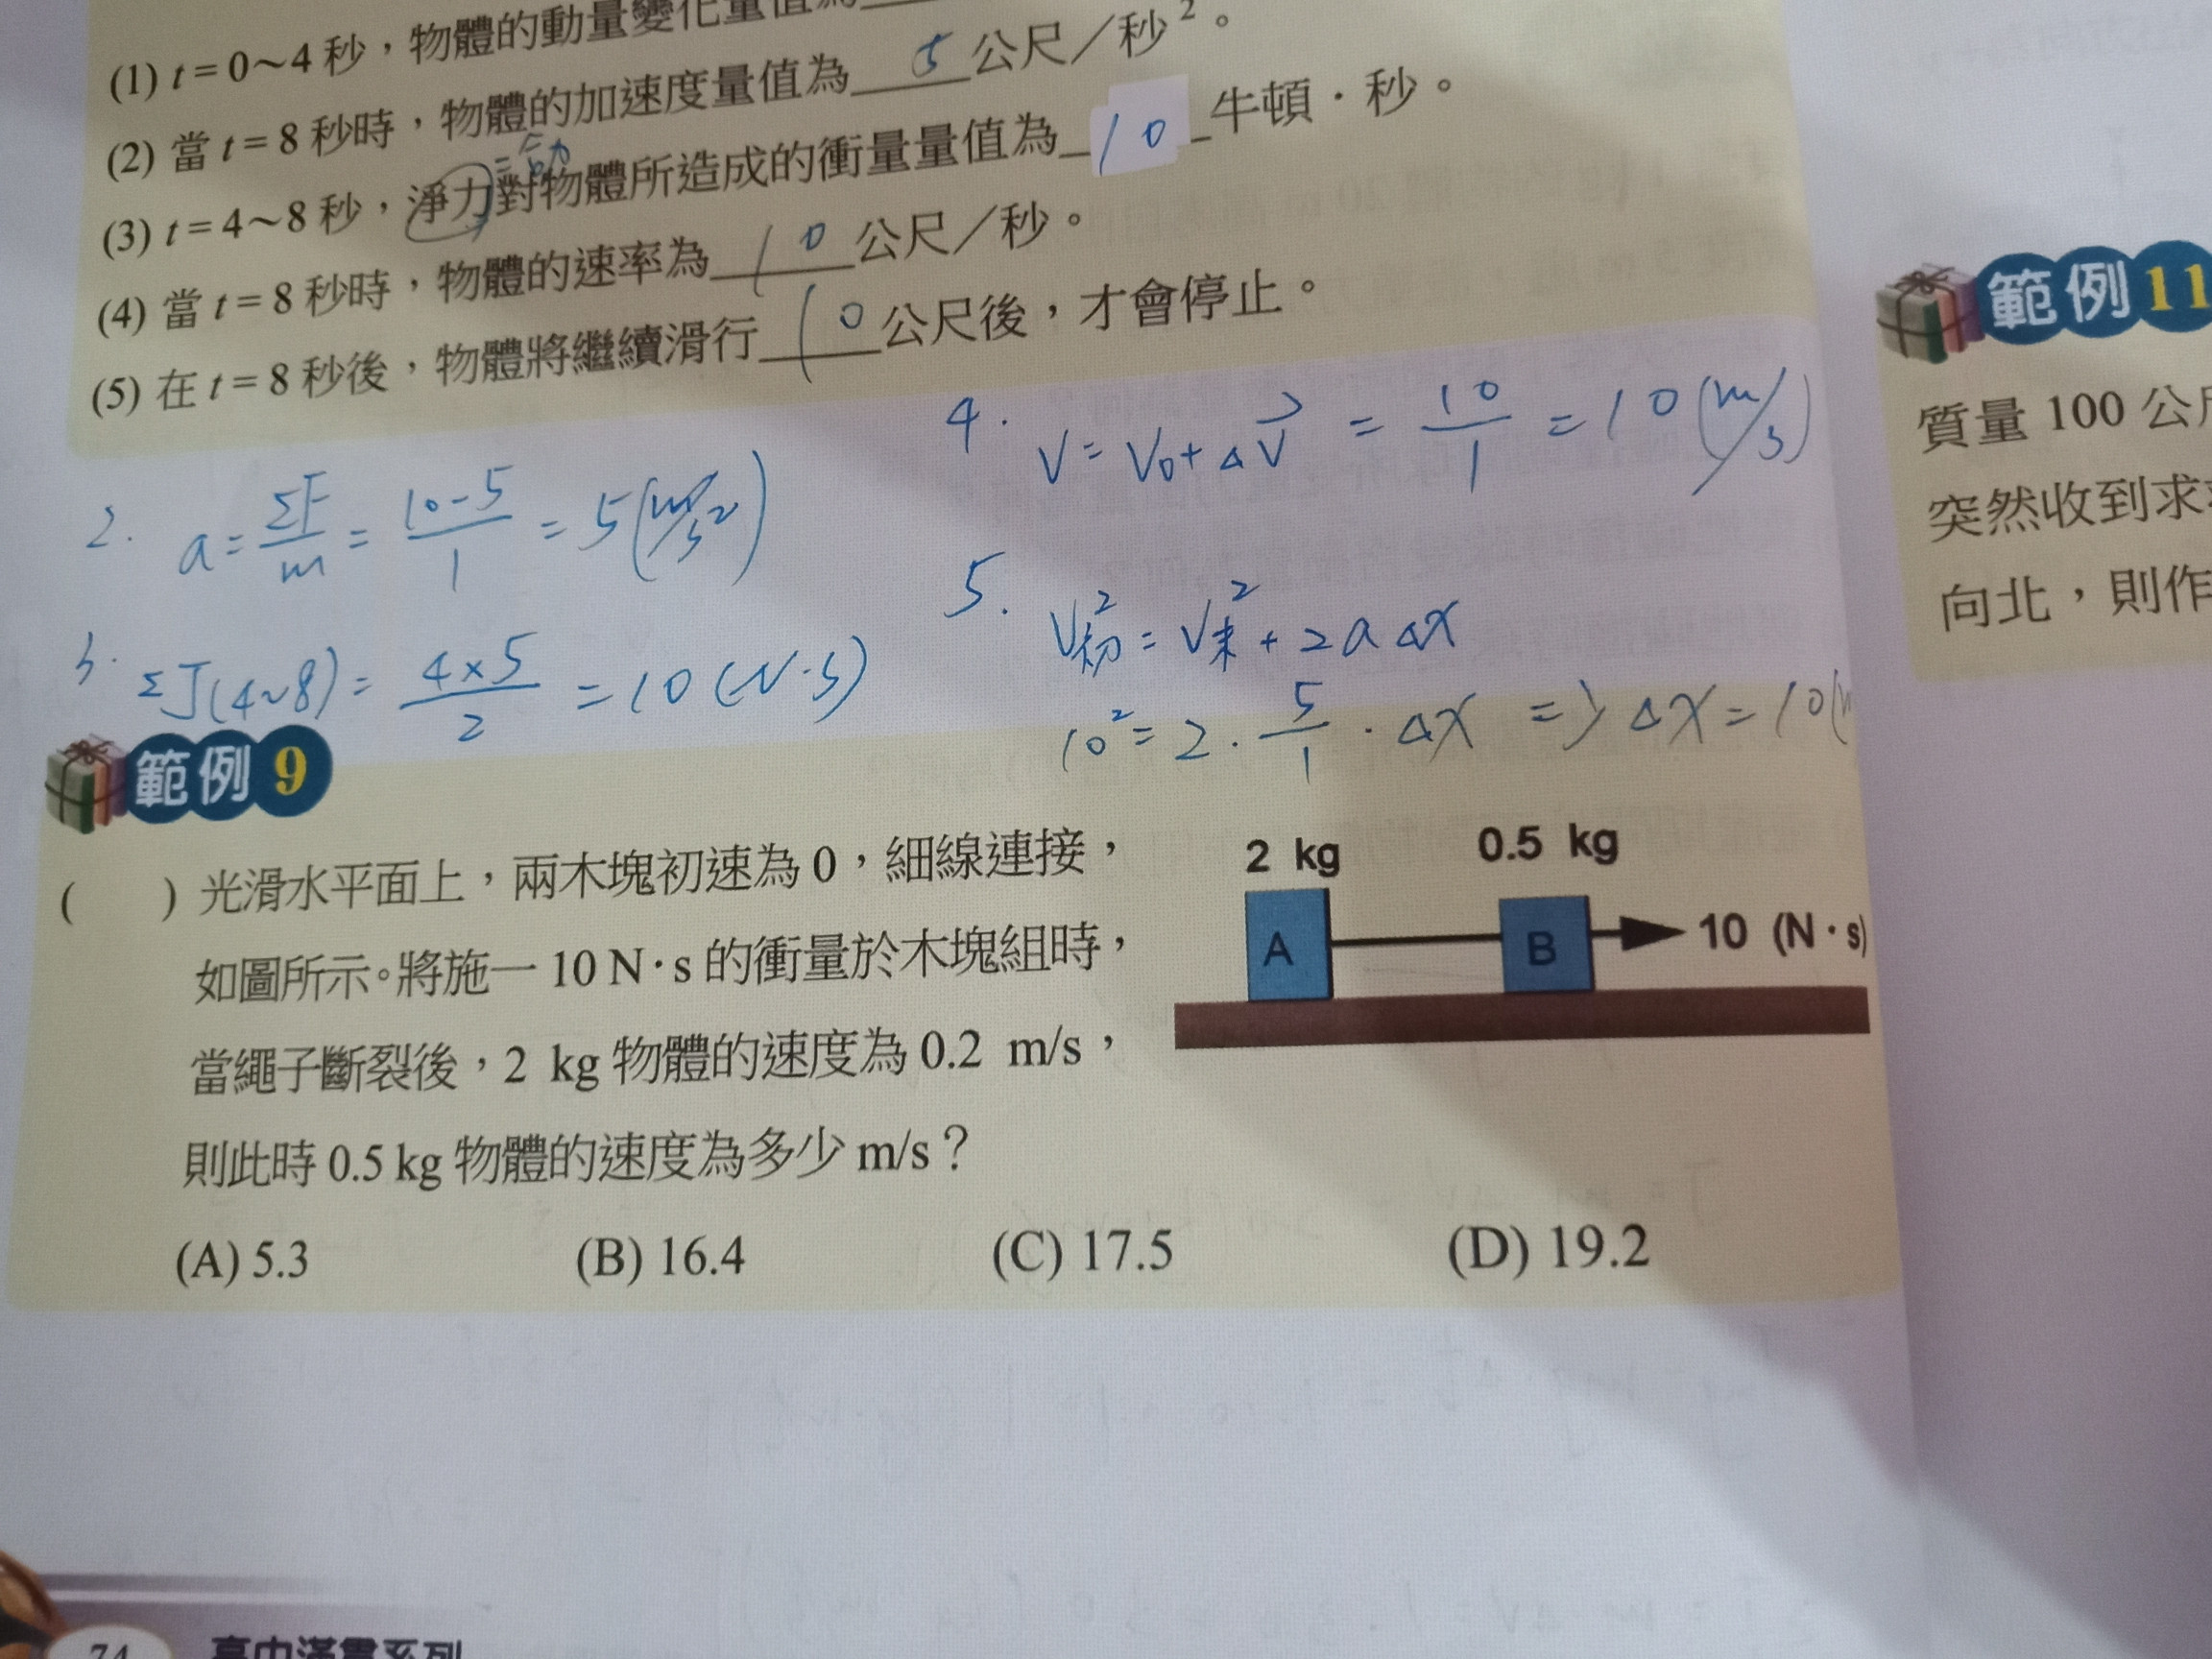 (1) t = 0～4 秒，物體的動量變化量值為
(2) 當 t = 8 秒時，物體的加速度量值為 5 公尺／秒²。
=合力
(3) t = 4～8 秒，淨力對物體所造成的衝量量值為 10 牛頓．秒。
(4) 當 t = 8 秒時，物體的速率為 10 公尺／秒。
(5) 在 t = 8 秒後，物體將繼續滑行 10 公尺後，才會停止。
2. a = ΣF/m = (10-5)/1 = 5 (m/s²)
3. ΣJ(4~8) = (4×5)/2 = 10 (N·S)
4. V = V0 + ΔV⃗ = 10/1 = 10 (m/s)
5. V初² = V末² + 2aΔX
10² = 2 · 5/1 · ΔX => ΔX = 10(
範例 9
(　) 光滑水平面上，兩木塊初速為 0，細線連接，
如圖所示。將施一 10 N·s 的衝量於木塊組時，
當繩子斷裂後，2 kg 物體的速度為 0.2 m/s，
則此時 0.5 kg 物體的速度為多少 m/s？
(A) 5.3 (B) 16.4 (C) 17.5 (D) 19.2
2 kg
0.5 kg
A
B
10 (N·s)
74 高中滿貫系列
範例 11
質量 100 公
突然收到求
向北，則作